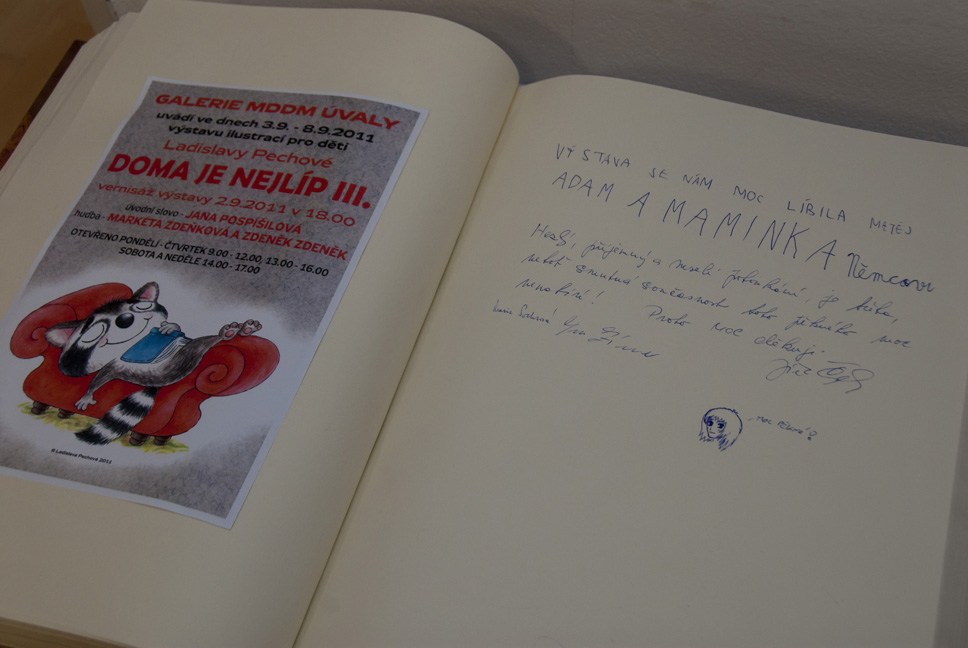 GALERIE MDDM ÚVALY
uvádí ve dnech 3.9. - 8.9.2011
výstavu ilustrací pro děti
Ladislavy Pechové
DOMA JE NEJLÍP III.
vernisáž výstavy 2.9.2011 v 18.00
úvodní slovo - JANA POSPÍŠILOVÁ
hudba - MARKÉTA ZDEŇKOVÁ A ZDENĚK ZDENĚK
OTEVŘENO PONDĚLÍ - ČTVRTEK 9.00 - 12.00, 13.00 - 16.00
SOBOTA A NEDĚLE 14.00 - 17.00
© Ladislava Pechová 2011
VÝSTAVA SE NÁM MOC LÍBILA MATĚJ
ADAM A MAMINKA Němcovi
Hezčí, příjemný a veselí, je třeba,
neboť smutná současnost toho moc
nenabízí! Proto moc děkuji.
Jiří